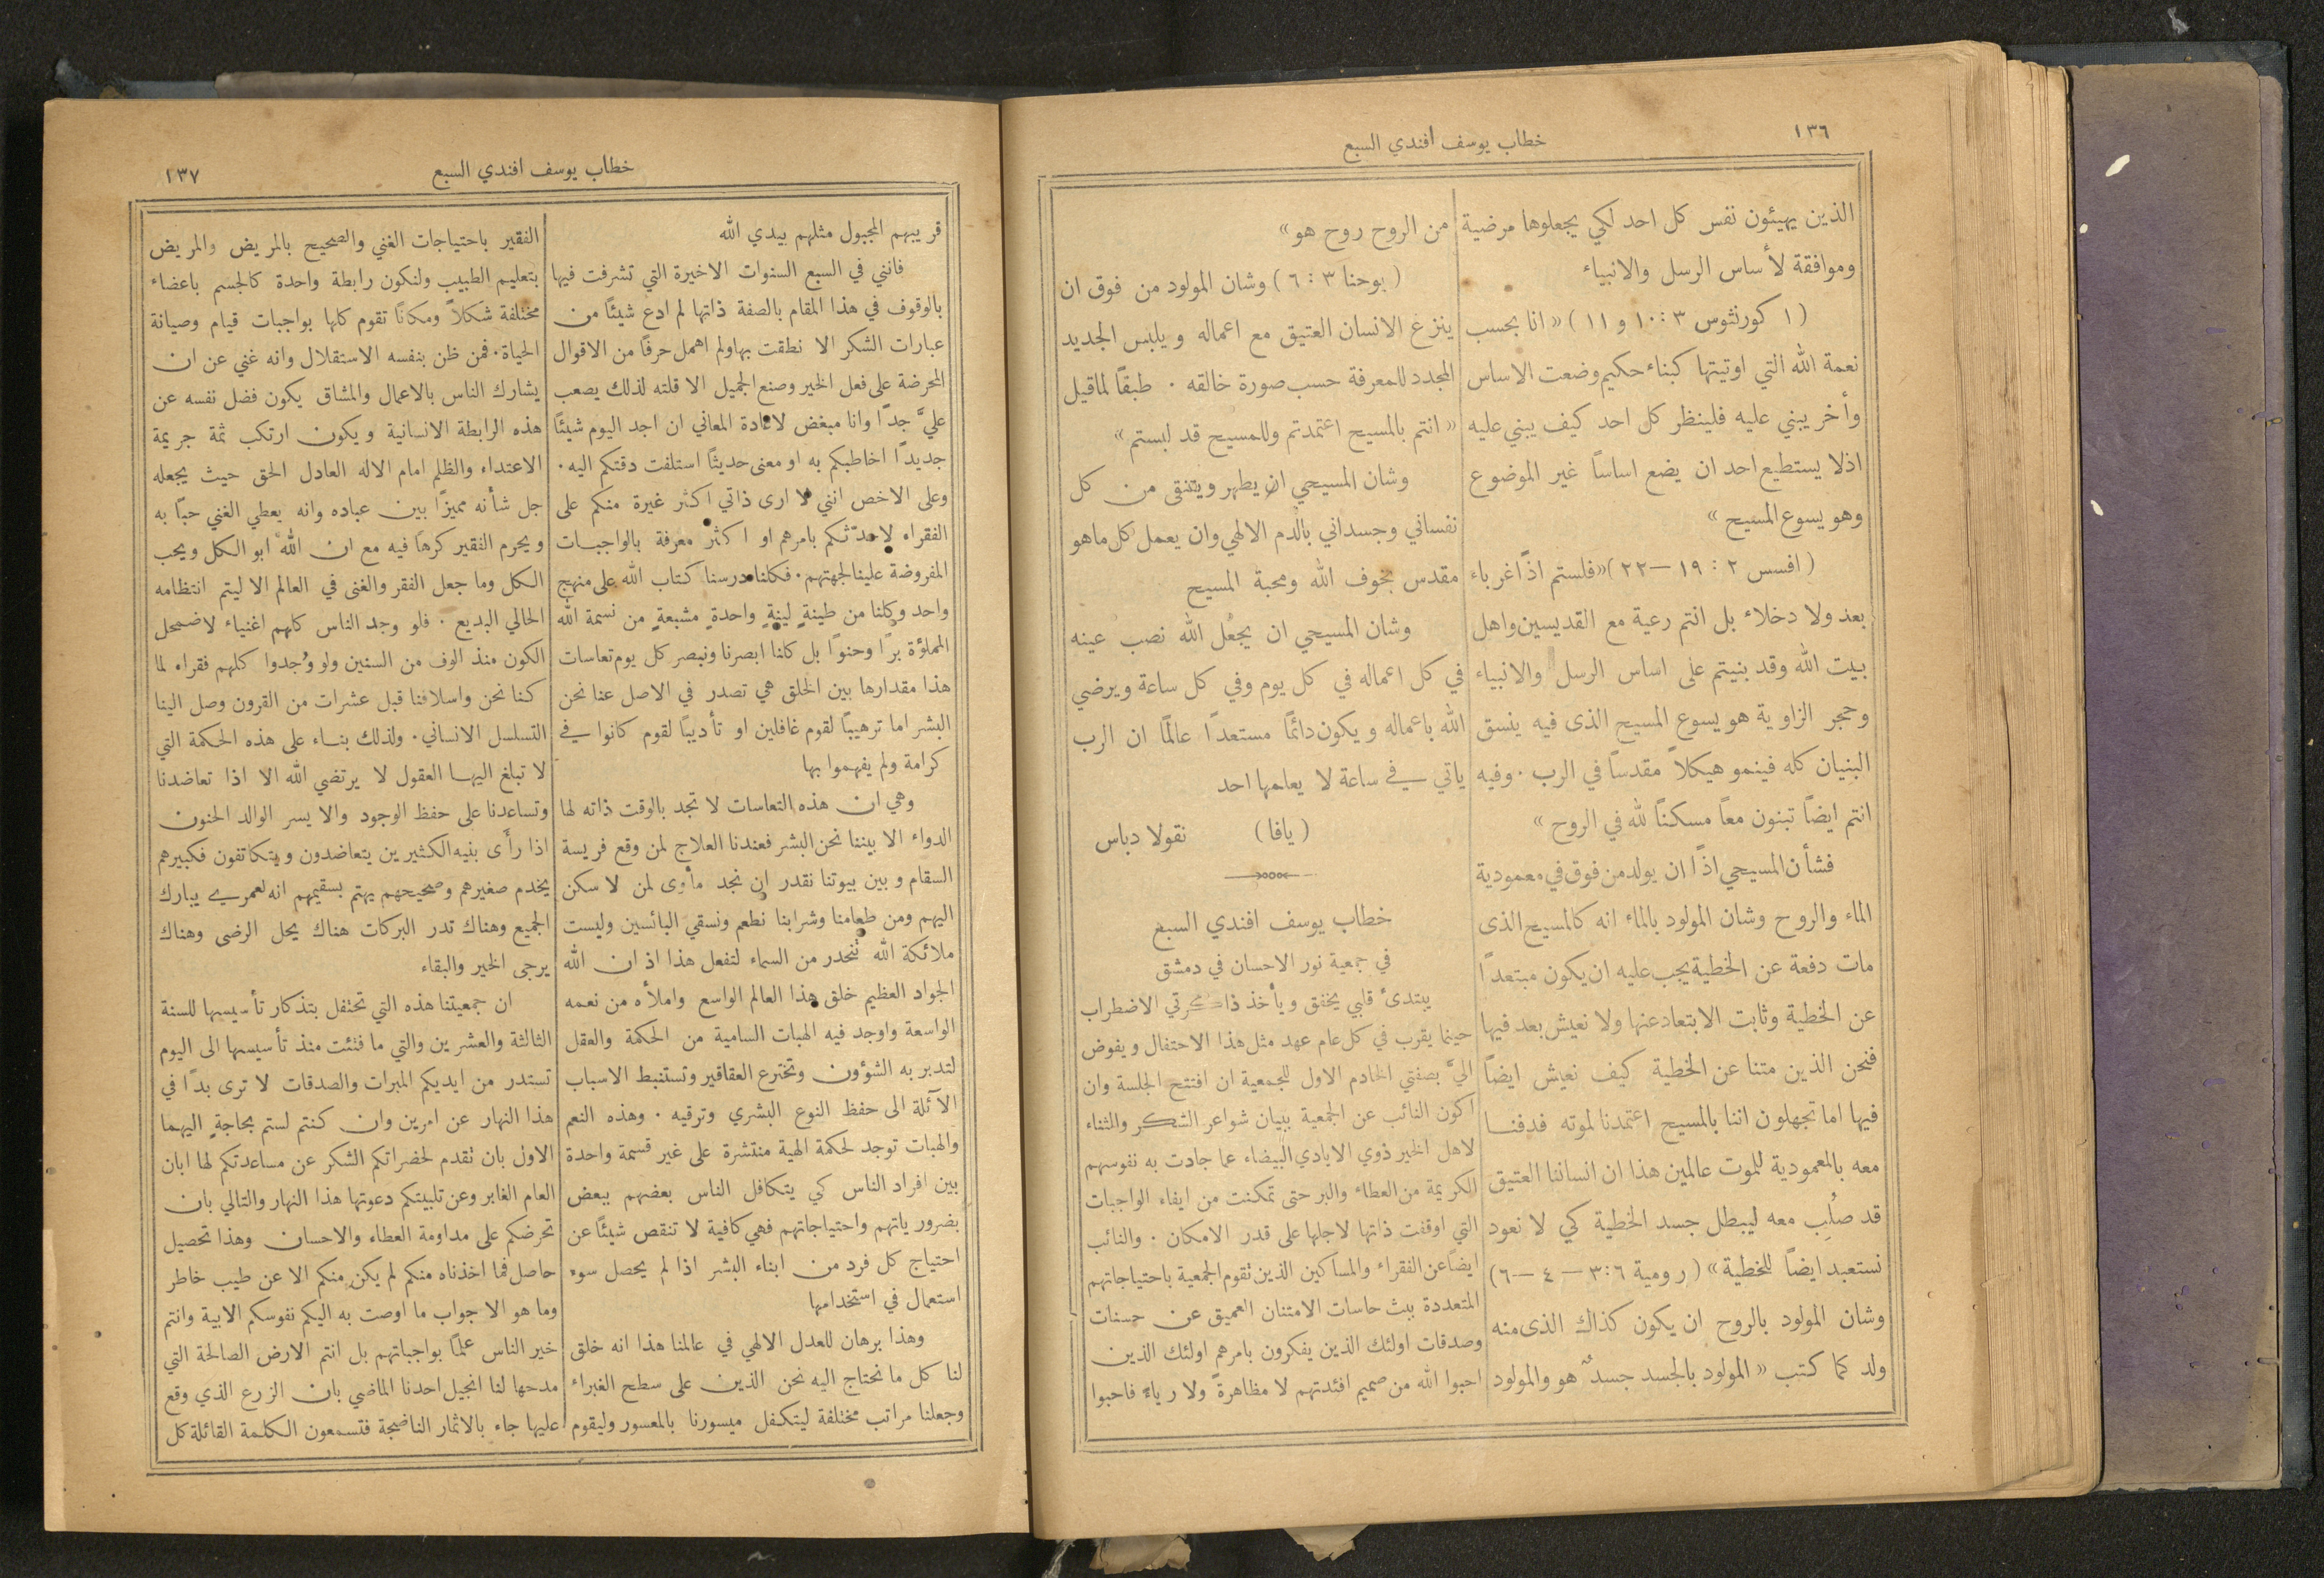 ١٣٦
خطاب يوسف افندي السبع
الذين يهيئون نفس كل احد لكي يجعلوها مرضية
وموافقة لأساس الرسل والانبياء
( ١ كورنثوس ٣ : ١٠ و ١١ ) « انا بحسب
نعمة الله التي اوتيتها كبناء حكيم وضعت الاساس
وأخر يبني عليه فلينظر كل احد كيف يبني عليه
اذلا يستطيع احد ان يضع اساساً غير الموضوع
وهو يسوع المسيح »
( افسس ٢ : ١٩ — ٢٢ ) « فلستم اذًا غرباء
بعد ولا دخلاء بل انتم رعية مع القديسين واهل
بيت الله وقد بنيتم على اساس الرسل والانبياء
وحجر الزاوية هو يسوع المسيح الذى فيه ينسق
البنيان كله فينمو هيكلاً مقدساً في الرب . وفيه
انتم ايضاً تبنون معاً مسكنًا لله في الروح »
فشأن المسيحي اذًا ان يولد من فوق في معمودية
الماء والروح وشان المولود بالماء انه كالمسيح الذى
مات دفعة عن الخطية يجب عليه ان يكون مبتعدًا
عن الخطية وثابت الابتعاد عنها ولا نعيش بعد فيها
فنحن الذين متنا عن الخطية كيف نعيش ايضاً
فيها اما تجهلون اننا بالمسيح اعتمدنا لموته فدفنا
معه بالمعمودية للموت عالمين هذا ان انساننا العتيق
قد صُلِب معه ليبطل جسد الخطية كي لا نعود
نستعبد ايضاً للخطية » ( رومية ٦ : ٣ — ٤ — ٦ )
وشان المولود بالروح ان يكون كذاك الذى منه
ولد كما كتب « المولود بالجسد جسدٌ هو والمولود
من الروح روح هو »
( يوحنا ٣ : ٦ ) وشان المولود من فوق ان
ينزع الانسان العتيق مع اعماله ويلبس الجديد
المجدد للمعرفة حسب صورة خالقه . طبقاً لماقيل
« انتم بالمسيح اعتمدتم وللمسيح قد لبستم »
وشان المسيحي ان يطهر ويتنقى من كل
نفساني وجسداني بالدم الالهي وان يعمل كل ماهو
مقدس بخوف الله ومحبة المسيح
وشان المسيحي ان يجعل الله نصب عينه
في كل اعماله في كل يوم وفي كل ساعة ويرضي
الله باعماله ويكون دائمًا مستعدًا عالمًا ان الرب
ياتي في ساعة لا يعلمها احد
( يافا ) نقولا دباس
خطاب يوسف افندي السبع
في جمعية نور الاحسان في دمشق
يبتدئ قلبي يخفق ويأخذ ذاكرتي الاضطراب
حينما يقرب في كل عام عهد مثل هذا الاحتفال ويفوض
اليَّ بصفتي الخادم الاول للجمعية ان افتتح الجلسة وان
اكون النائب عن الجمعية ببيان شواعر الشكر والثناء
لاهل الخير ذوي الايادي البيضاء عما جادت به نفوسهم
الكريمة من العطاء والبر حتى تمكنت من ايفاء الواجبات
التي اوقفت ذاتها لاجلها على قدر الامكان . والنائب
ايضاً عن الفقراء والمساكين الذين تقوم الجمعية باحتياجاتهم
المتعددة ببث حاسات الامتنان العميق عن حسنات
وصدقات اولئك الذين يفكرون بامرهم اولئك الذين
احبوا الله من صميم افئدتهم لا مظاهرةً ولا رياءً فاحبوا
خطاب يوسف افندي السبع
١٣٧
قريبهم المجبول مثلهم بيدي الله
فانني في السبع السنوات الاخيرة التي تشرفت فيها
بالوقوف في هذا المقام بالصفة ذاتها لم ادع شيئًا من
عبارات الشكر الا نطقت بها ولم اهمل حرفًا من الاقوال
المحرضة على فعل الخير وصنع الجميل الا قلته لذلك يصعب
عليَّ جدًا وانا مبغض لاعادة المعاني ان اجد اليوم شيئًا
جديدًا اخاطبكم به او معنى حديثًا استلفت دقتكم اليه .
وعلى الاخص انني لا ارى ذاتي اكثر غيرة منكم على
الفقراء لاحدّثكم بامرهم او اكثر معرفة بالواجبات
المفروضة علينا لجهتهم . فكلنا درسنا كتاب الله على منهج
واحد وكلنا من طينةٍ لينةٍ واحدةٍ مشبعةٍ من نسمة الله
المملؤة برًا وحنوًا بل كلنا ابصرنا ونبصر كل يوم تعاسات
هذا مقدارها بين الخلق هي تصدر في الاصل عنا نحن
البشر اما ترهيبًا لقوم غافلين او تأديبًا لقوم كانوا في
كرامة ولم يفهموا بها
وهي ان هذه التعاسات لا تجد بالوقت ذاته لها
الدواء الا بيننا نحن البشر فعندنا العلاج لمن وقع فريسة
السقام وبين بيوتنا نقدر ان نجد مأوى لمن لا سكن
اليهم ومن طعامنا وشرابنا نُطعم ونسقي البائسين وليست
ملائكة الله تنحدر من السماء لتفعل هذا اذ ان الله
الجواد العظيم خلق هذا العالم الواسع واملأه من نعمه
الواسعة واوجد فيه الهبات السامية من الحكمة والعقل
لتدبر به الشؤون وتخترع العقاقير وتستنبط الاسباب
الآئلة الى حفظ النوع البشري وترقيه . وهذه النعم
والهبات توجد لحكمة الهية منتشرة على غير قسمة واحدة
بين افراد الناس كي يتكافل الناس بعضهم ببعض
بضرورياتهم واحتياجاتهم فهي كافية لا تنقص شيئًا عن
احتياج كل فرد من ابناء البشر اذا لم يحصل سوء
استعمال في استخدامها
وهذا برهان للعدل الالهي في عالمنا هذا انه خلق
لنا كل ما نحتاج اليه نحن الذين على سطح الغبراء
وجعلنا مراتب مختلفة ليتكفل ميسورنا بالمعسور وليقوم
الفقير باحتياجات الغني والصحيح بالمريض والمريض
بتعليم الطبيب ولنكون رابطة واحدة كالجسم باعضاء
مختلفة شكلاً ومكانًا تقوم كلها بواجبات قيام وصيانة
الحياة . فمن ظن بنفسه الاستقلال وانه غني عن ان
يشارك الناس بالاعمال والمشاق يكون فضل نفسه عن
هذه الرابطة الانسانية ويكون ارتكب ثمة جريمة
الاعتداء والظلم امام الاله العادل الحق حيث يجعله
جل شأنه مميزًا بين عباده وانه يعطي الغني حبًا به
ويحرم الفقير كرهًا فيه مع ان الله ابو الكل ويحب
الكل وما جعل الفقر والغنى في العالم الا ليتم انتظامه
الحالي البديع . فلو وجد الناس كلهم اغنياء لاضمحل
الكون منذ الوف من السنين ولو وُجدوا كلهم فقراء لما
كنا نحن واسلافنا قبل عشرات من القرون وصل الينا
التسلسل الانساني . ولذلك بناء على هذه الحكمة التي
لا تبلغ اليها العقول لا يرتضي الله الا اذا تعاضدنا
وتساعدنا على حفظ الوجود والا يسر الوالد الحنون
اذا رأى بنيه الكثيرين يتعاضدون ويتكاتفون فكبيرهم
يخدم صغيرهم وصحيحهم يهتم بسقيمهم انه لعمري يبارك
الجميع وهناك تدر البركات هناك يحل الرضى وهناك
يرجى الخير والبقاء
ان جمعيتنا هذه التي تحتفل بتذكار تأسيسها للسنة
الثالثة والعشرين والتي ما فتئت منذ تأسيسها الى اليوم
تستدر من ايديكم المبرات والصدقات لا ترى بدًا في
هذا النهار عن امرين وان كنتم لستم بحاجةٍ اليهما
الاول بان تقدم لحضراتكم الشكر عن مساعدتكم لها ابان
العام الغابر وعن تلبيتكم دعوتها هذا النهار والتالي بان
تحرضكم على مداومة العطاء والاحسان وهذا تحصيل
حاصل فما اخذناه منكم لم يكن منكم الا عن طيب خاطر
وما هو الا جواب ما اوصت به اليكم نفوسكم الابية وانتم
خير الناس علمًا بواجباتهم بل انتم الارض الصالحة التي
مدحها لنا انجيل احدنا الماضي بان الزرع الذي وقع
عليها جاء بالاثمار الناضجة فتسمعون الكلمة القائلة كل